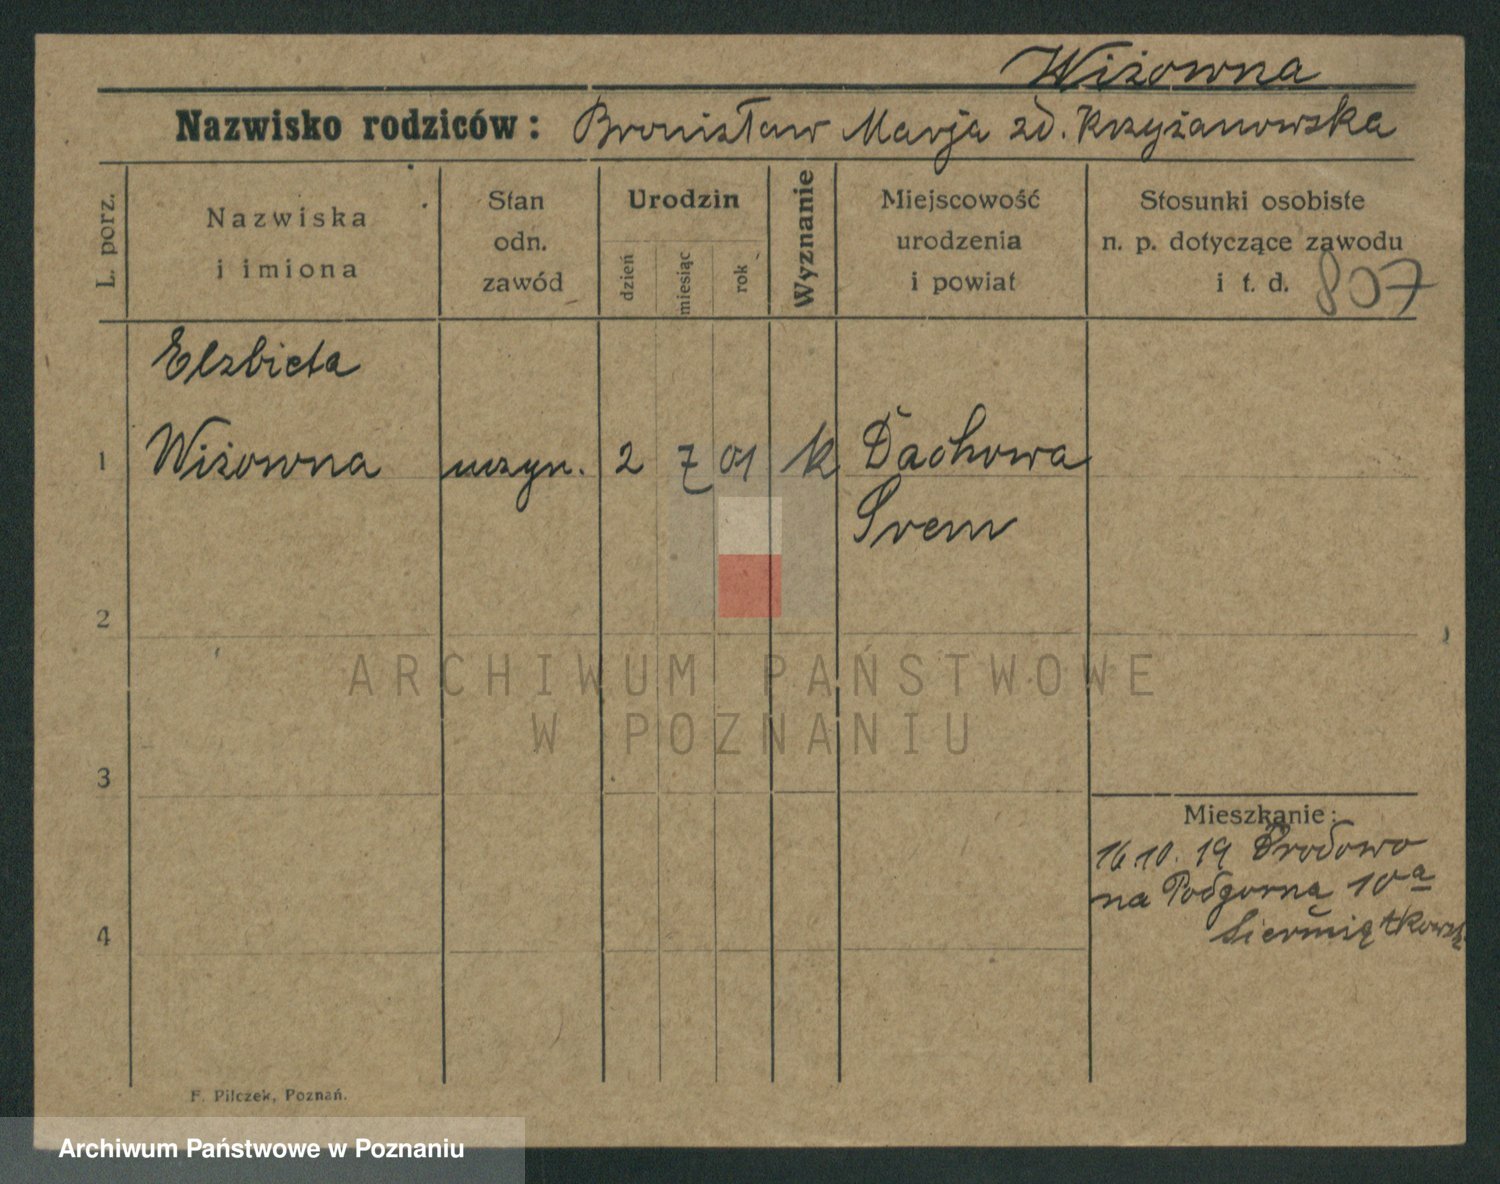 Wiżowna
Nazwisko rodziców: Bronisław Marja zd. Krzyżanowska
L. porz.
Nazwiska
i imiona
Stan
odn.
zawód
Urodzin
dzień
miesiąc
rok
Wyznanie
Miejscowość
urodzenia
i powiat
Stosunki osobiste
n. p. dotyczące zawodu
i t. d. 807
Elzbieta
1 Wiżowna 2 7 01 k Dachowa
Srem
2
ARCHIWUM PAŃSTWOWE
W POZNANIU
3
Mieszkanie:
16 10. 19
na Podgorna 10a
4
F. Pilczek, Poznań.
Archiwum Państwowe w Poznaniu